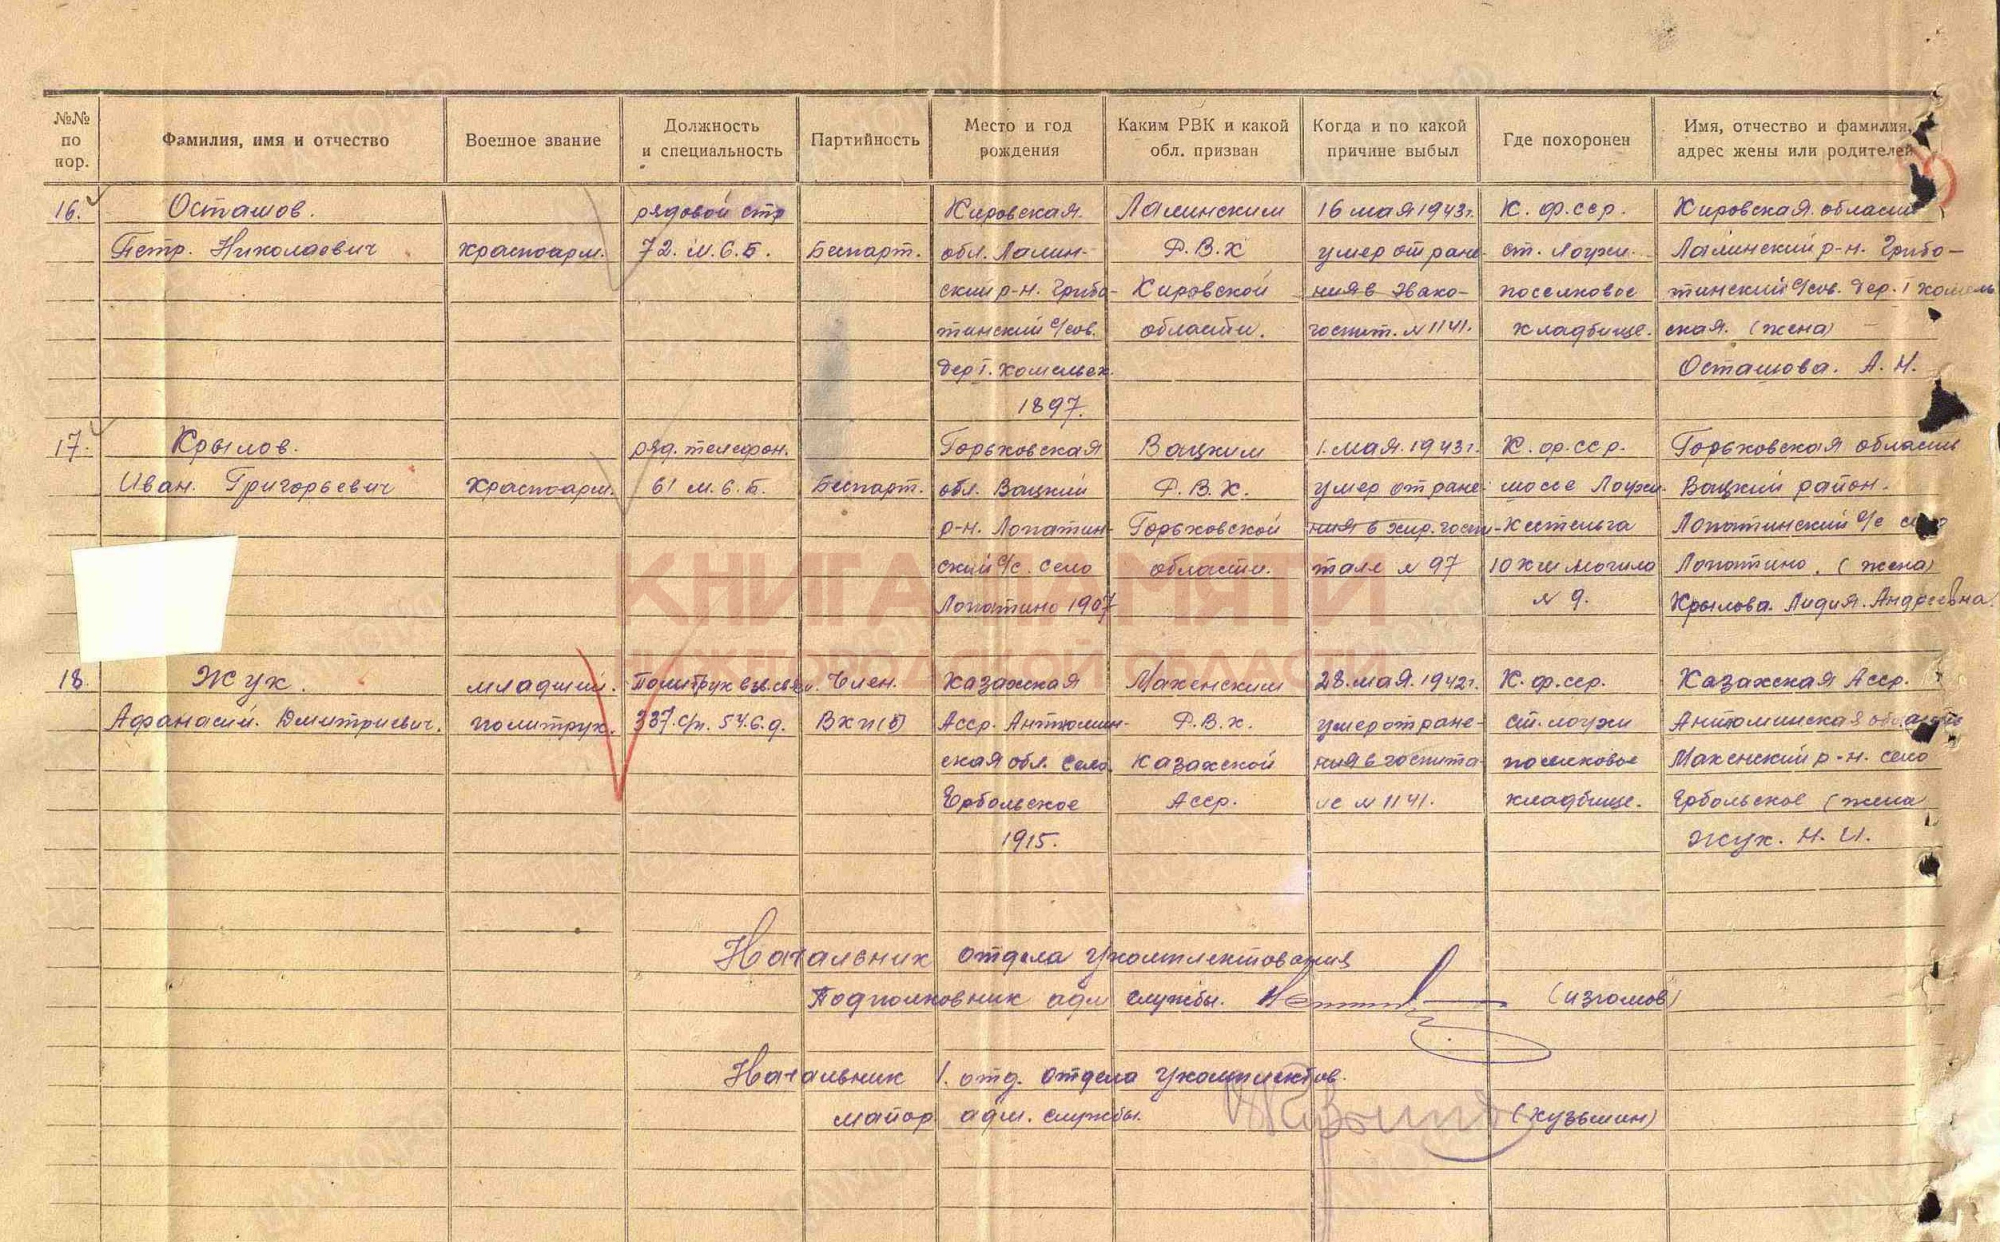 №№ по пор.
Фамилия, имя и отчество
Военное звание
Должность и специальность
Партийность
Место и год рождения
Каким РВК и какой обл. призван
Когда и по какой причине выбыл
Где похоронен
Имя, отчество и фамилия, адрес жены или родителей
16. Осташов. рядовой стр Кировская. Лалинским 16 мая 1943г. К.ф.сср. Кировская область
Петр. Николаевич Красноарм. 72. М.С.Б. Беспарт. обл. Лалин- Р.В.К умер от ране- ст. Лоухи. Лалинский р-н. Грибо-
ский р-н. Грибо- Кировской ния в Эвако- поселковое шинский с/сов. дер. I
шинский с/сов. области. госпит. №1141. кладбище. ская. (жена)
дер I. Осташова. А.Н.
1897.
17. Крылов. ряд. телефон. Горьковская Вацким 1.мая.1943г. К.ф.сср. Горьковская область
Иван. Григорьевич Красноарм. 61 М.С.Б. Беспарт. обл. Вацкий Р.В.К. умер от ране- шоссе Лоухи- Вацкий район.
р-н. Лопатин- Горьковской ния в хир. госпи- Кестеньга Лопатинский с/с село
ский с/с. село области. тале №97 10 км могила Лопатино. (жена)
Лопатино 1907 №9. Крылова. Лидия. Андреевна.
КНИГА ПАМЯТИ
НИЖЕГОРОДСКОЙ ОБЛАСТИ
18. Жук. младший. Политрук Член. Казахская Макенским 28.мая.1942г. К.ф.сср. Казахская Асср.
Афанасий. Дмитриевич. политрук. 337.с/п. 54.с.д. ВКП(б) Асср. Р.В.К. умер от ране- ст. Лоухи
ская обл. село Казахской ния в госпита- поселковое Макенский р-н. село
Ербольское Асср. ле №1141. кладбище. Ербольское (жена
1915. Жук. Н.И.
Начальник отдела укомплектования
Подполковник адм службы. (Изюмов)
Начальник 1. отд. отдела укомплектов.
майор. адм. службы. (Кузьмин)